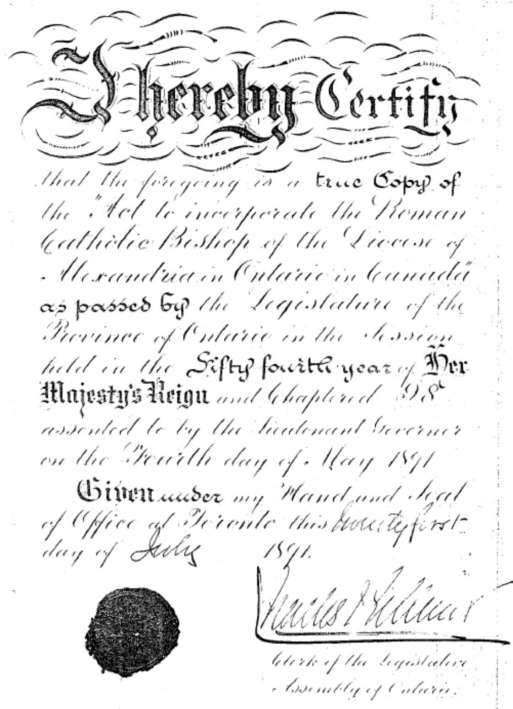 I hereby Certify
that the foregoing is a true Copy of
the "Act to incorporate the Roman
Catholic Bishop of the Diocese of
Alexandria in Ontario in Canada"
as passed by the Legislature of the
Province of Ontario in the Session
held in the Fifty fourth year of Her
Majesty's Reign and Chaptered 98
assented to by the Lieutenant Governor
on the Fourth day of May 1891
Given under my Hand and Seal
of Office at Toronto this twenty first
day of July 1891.
Charles
Clerk of the Legislative
Assembly of Ontario.